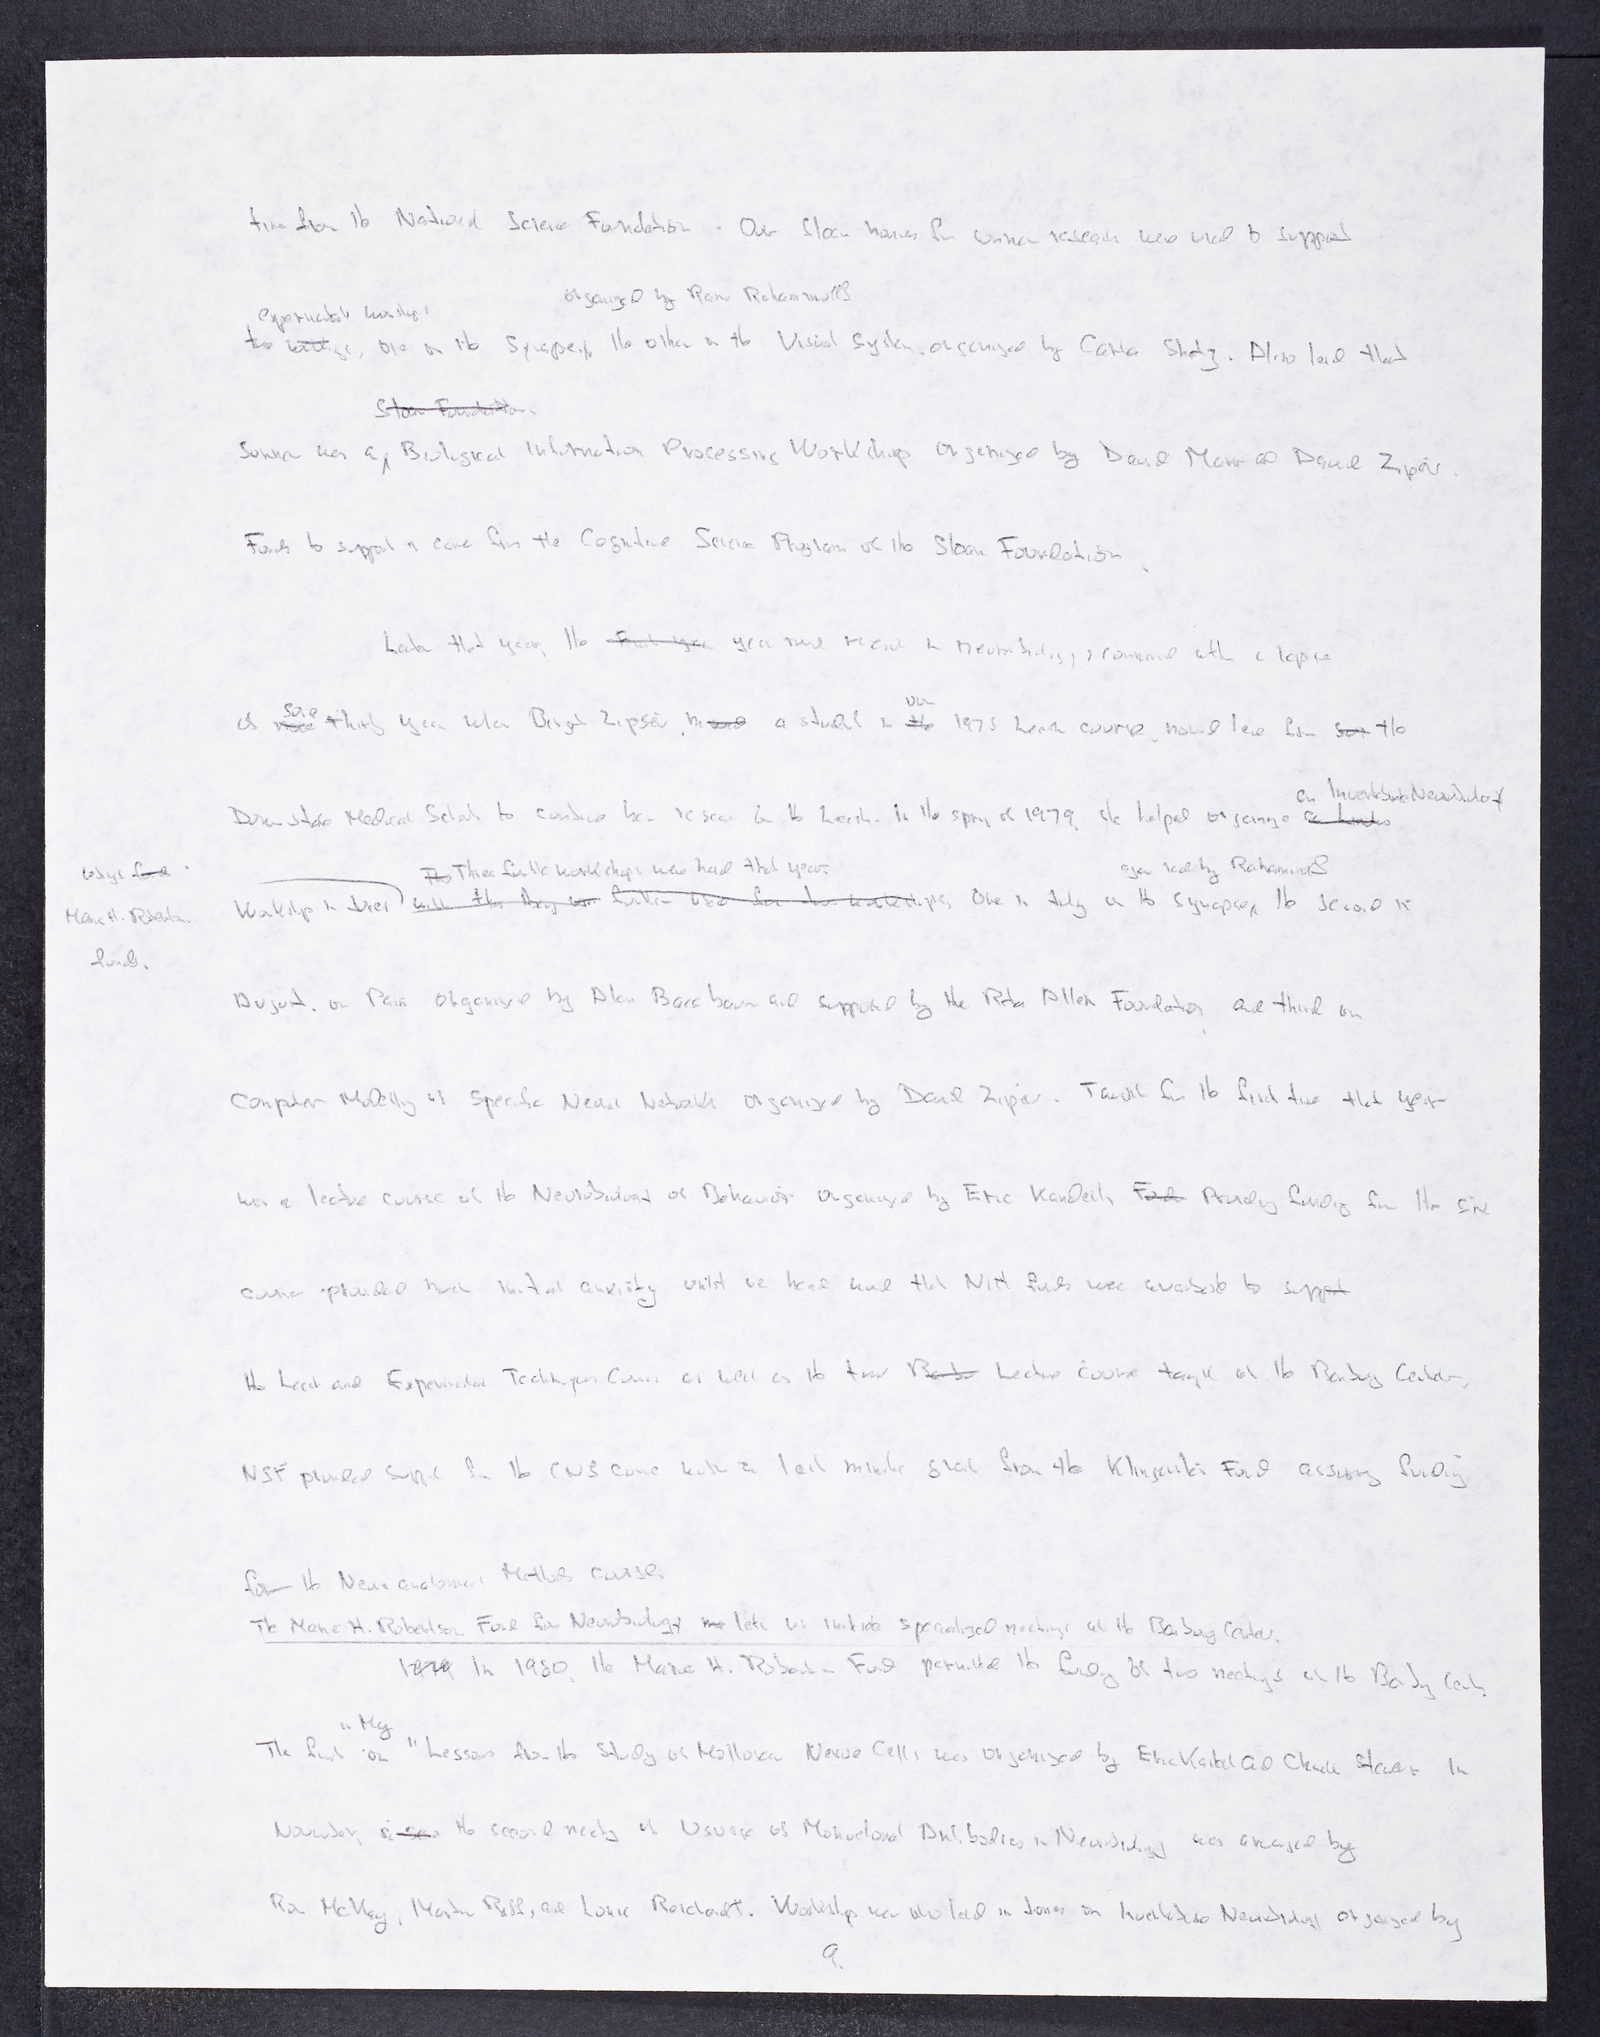 time from the National Science Foundation. Our Sloan monies for summer research were used to support
organized by Rami Rahamimoff
experimental workshops
two meetings, one on the Synapse, the other on the Visual System organized by Carla Shatz. Also held that
Sloan Foundation
summer was a Biological Information Processing Workshop organized by David Marr and David Zipser.
Funds to support it came from the Cognitive Science Program of the Sloan Foundation.
Later that year, the year round research in neurobiology, commenced after a lapse
some our
of thirty years when Birgit Zipser, a student in the 1975 Leech course, moved here from the
an Invertebrate Neurobiology
Downstate Medical School to continue her research on the Leech. In the spring of 1979, she helped organize a Leech
using fund
Three further workshops were held that year.
organized by Rahamimoff
Workshop in June one in July on the Synapse, the second in
Marie H. Robertson
funds.
August, on Pain organized by Alan Basbaum and supported by the Rita Allen Foundation, and third on
Computer Modelling of Specific Neural Networks organized by David Zipser. Taught for the first time that year
was a lecture course on the Neurobiology of Behavior organized by Eric Kandel. Providing funding for the six
courses provided much initial anxiety until we heard word that NIH funds were available to support
the Leech and Experimental Techniques Courses as well as the two Lecture course taught at the Banbury Center,
NSF provided support for the CNS course with a last minute grant from the Klingenstein Fund assuring funding
for the Neuroanatomical Methods course.
The Marie H. Robertson Fund for Neurobiology lets us initiate specialized meetings at the Banbury Center.
1979 In 1980, the Marie H. Robertson Fund permitted the funding of two meetings at the Banbury Center.
in May
The first on "Lessons from the Study of Molluscan Nerve Cells was organized by Eric Kandel and Chuck Stevens. In
November, the second meeting on Usage of Monoclonal Antibodies in Neurobiology was arranged by
Ron McKay, Martin Raff, and Louis Reichardt. Workshop was also held in June on Invertebrate Neurobiology organized by
9.